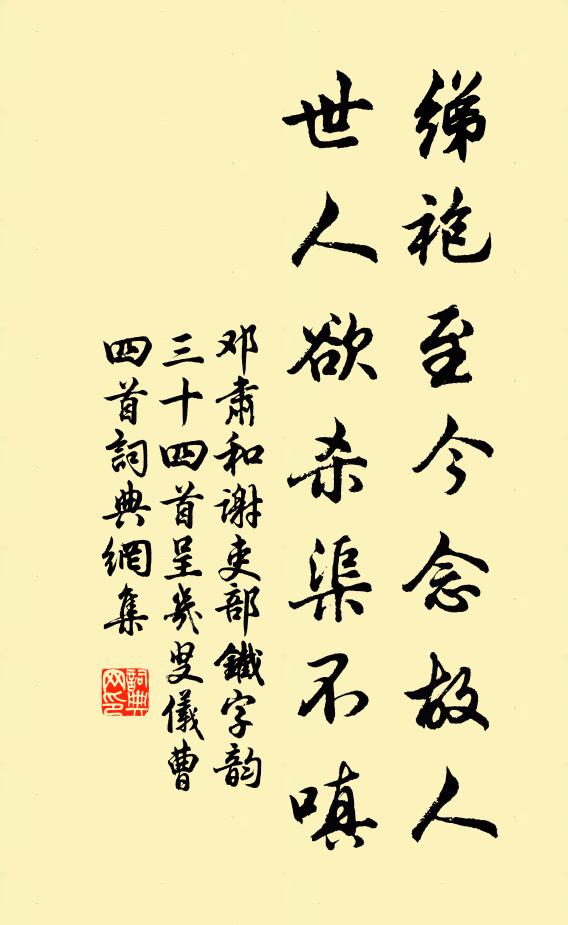 绨袍至今念故人
世人欲杀渠不嗔
邓肃和谢吏部鐵字韵
三十四首呈幾叟儀曹
四首詞典網集
詞典网印